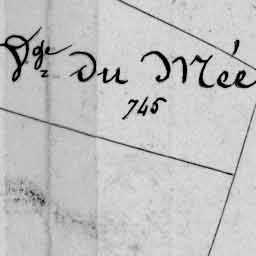 Vge du Mée
745